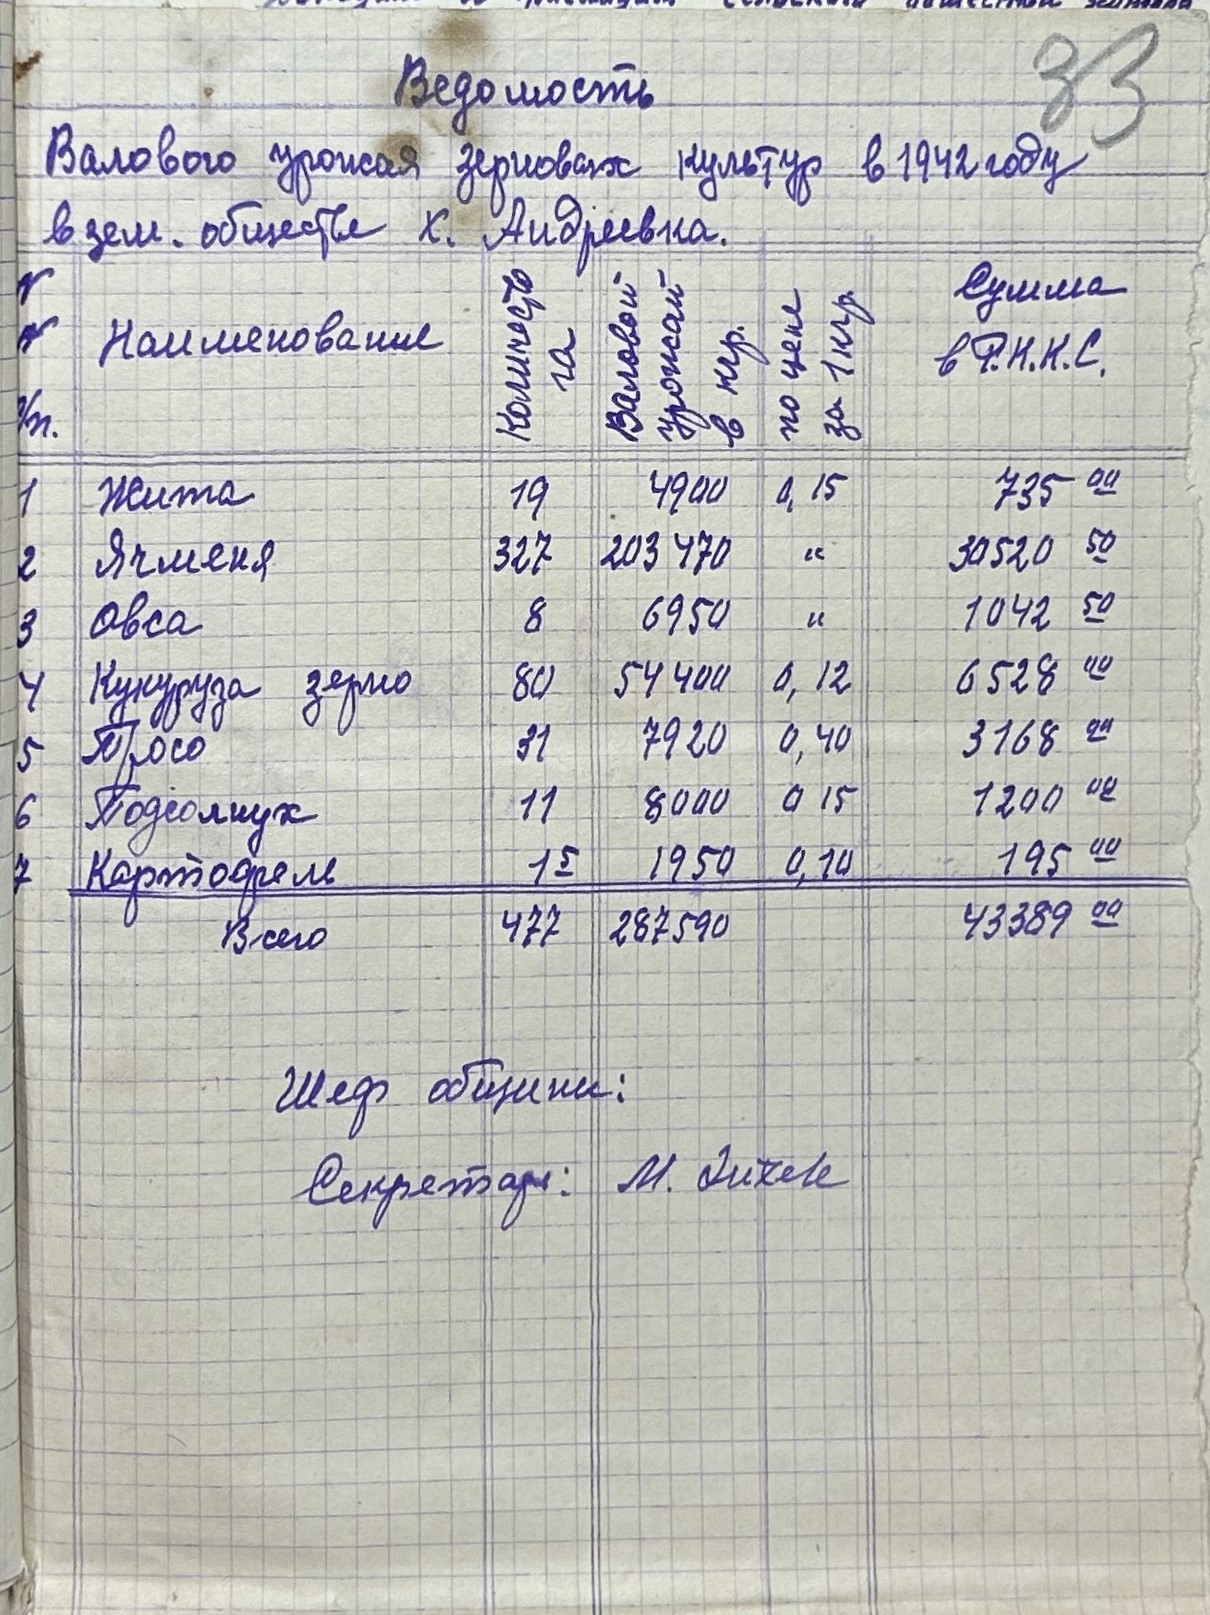 33
Ведомость
Валового урожая зерновых культур в 1942 году
в зем. обществе х. Андреевка.
№ № п/п. Наименование Количество га Валовой урожай в кгр. по цене за 1 кгр. Сумма в Р.К.К.С.
1 Жита 19 4900 0,15 735 00
2 Ячменя 327 203470 " 30520 50
3 Овса 8 6950 " 1042 50
4 Кукуруза зерно 80 54400 0,12 6528 00
5 Просо 31 7920 0,40 3168 00
6 Подсолнух 11 8000 0 15 1200 00
7 Картофеля 1 5 1950 0,10 195 00
Всего 477 287590 43389 00
Шеф общины:
Секретарь: М.